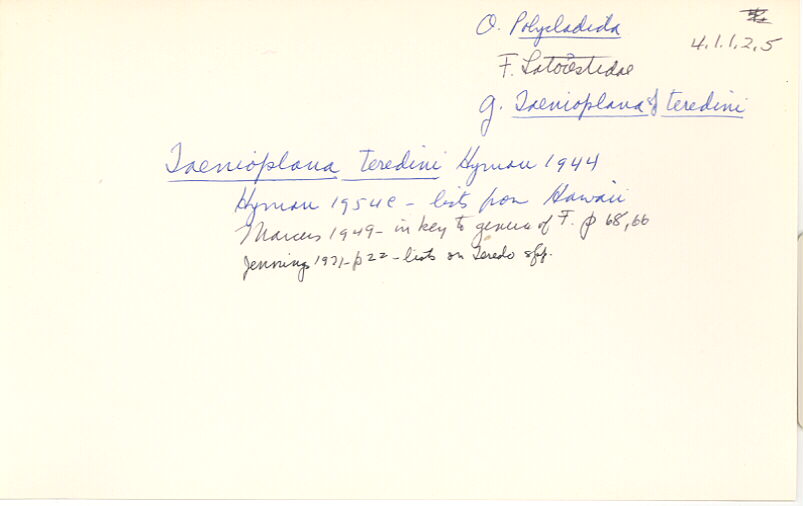 O. Polycladida
4.1.1.2.5
F. Latocestidae
g. Taenioplana & teredini
Taenioplana teredini Hyman 1944
Hyman 1954c - lists from Hawaii
Marcus 1949 - in key to genera of F. p 68, 66
Jennings 1971 - p 22 - lists on Teredo spp.